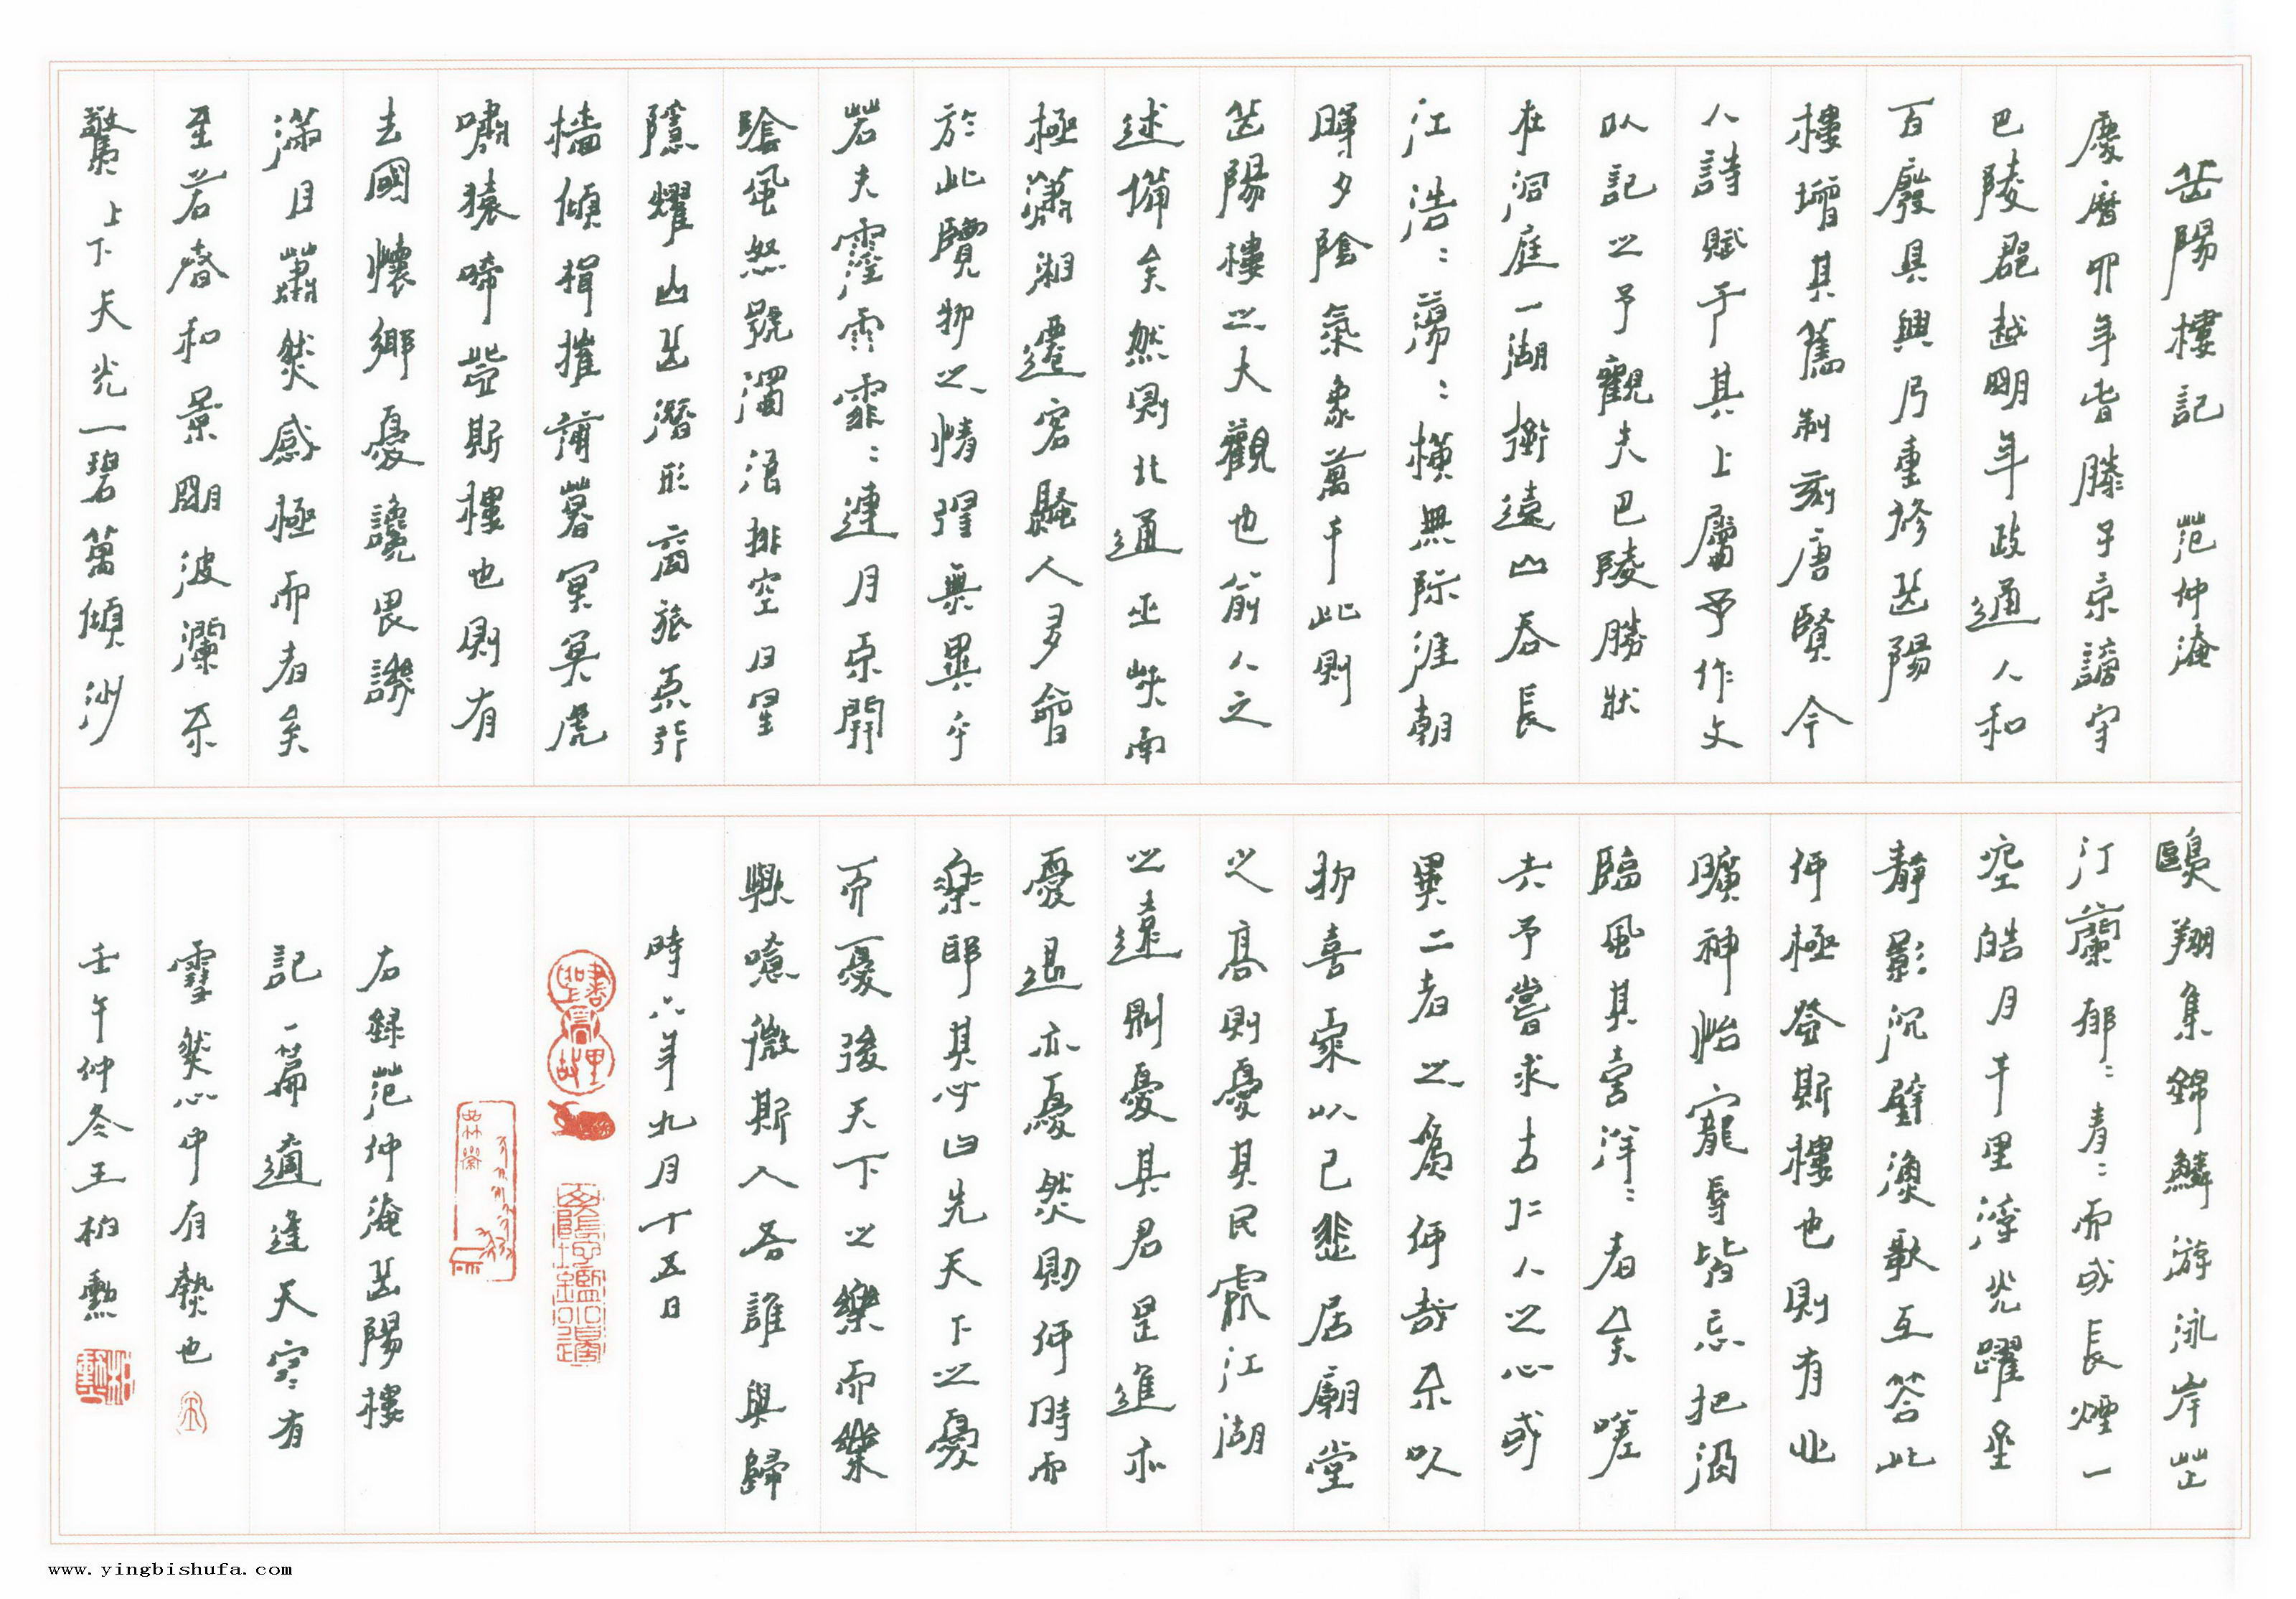 岳陽樓記 范仲淹
慶曆四年春滕子京謫守
巴陵郡越明年政通人和
百廢具興乃重修岳陽
樓增其舊制刻唐賢今
人詩賦于其上屬予作文
以記之予觀夫巴陵勝狀
在洞庭一湖銜遠山吞長
江浩〻蕩〻橫無際涯朝
暉夕陰氣象萬千此則
岳陽樓之大觀也前人之
述備矣然則北通巫峽南
極瀟湘遷客騷人多會
於此覽物之情得無異乎
若夫霪雨霏〻連月不開
陰風怒號濁浪排空日星
隱耀山岳潛形商旅不行
檣傾楫摧薄暮冥冥虎
嘯猿啼登斯樓也則有
去國懷鄉憂讒畏譏
滿目蕭然感極而者矣
至若春和景明波瀾不
驚上下天光一碧萬傾沙
鷗翔集錦鱗游泳岸芷
汀蘭郁〻青〻而或長煙一
空皓月千里浮光躍金
靜影沉璧漁歌互答此
何極登斯樓也則有心
曠神怡寵辱皆忘把酒
臨風其喜洋〻者矣嗟
夫予嘗求古仁人之心或
異二者之為何哉不以
物喜不以己悲居廟堂
之高則憂其民處江湖
之遠則憂其君是進亦
憂退亦憂然則何時而
樂耶其必曰先天下之憂
而憂後天下之樂而樂
歟噫微斯人吾誰與歸
時六年九月十五日
右錄范仲淹岳陽樓
記一篇適逢天寒有
雪然心中有熱也
壬午仲冬王柏勳
www.yingbishufa.com